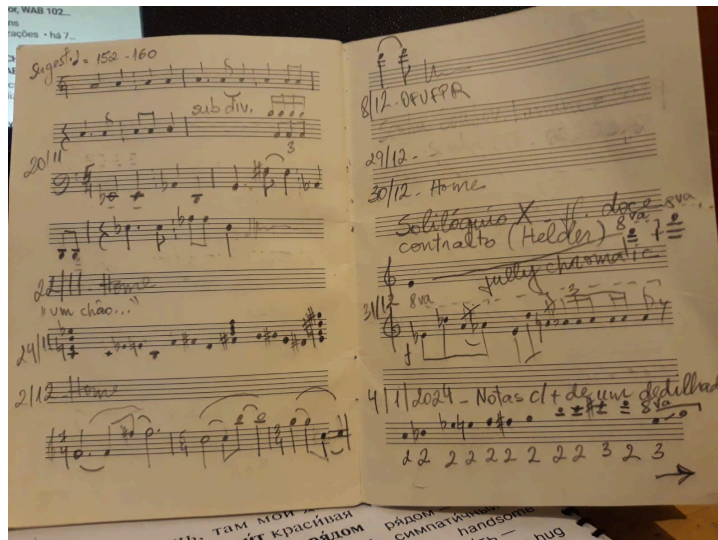 or, WAB 102...
ns
zações · há 7...
Sugest. ♩ = 152 - 160
sub div.
3
20/11
22/11 - Home
"um chão..."
24/11
2/12 - Home
8/12 - OFUFPR
29/12 -
30/12 - Home
Solilóquio X - ff. doce
contralto (Helder) 8va
8va
fully chromatic
31/12
8va
3
f
4/1/2024 - Notas c/ + de um dedilhado
8va
2 2 2 2 2 2 2 2 2 3 2 3
там мой
красивая
рядом
рядом —
симпатичный
handsome
hug